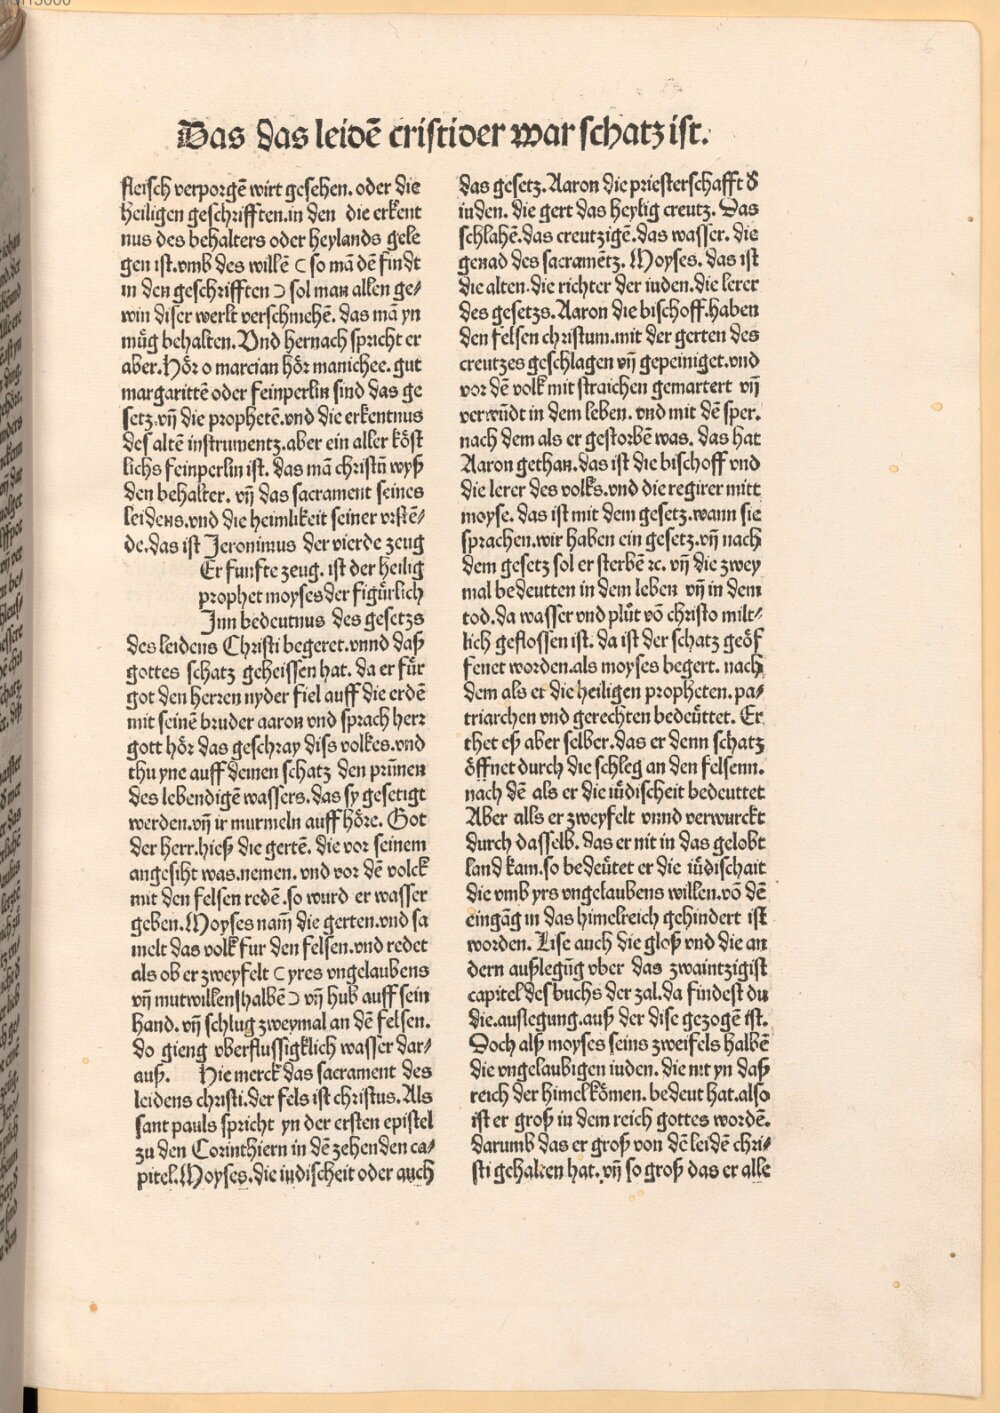 Das das leidē cristi der war schatz ist.
fleisch verporgē wirt gesehen. oder die
heiligen geschrifften. in den die erkent
nus des behalters oder heylands gele
gen ist. vmb des willē ( so mā dē findt
in den geschrifften ) sol man allen ge⸗
win diser werlt verschmehē. das mā yn
mu̇g behalten. Vnd hernach spricht er
aber. Hȯr o marcian hȯr manichee. gut
margarittē oder feinperlin sind das ge
setz. vn̄ die prophetē. vnd die erkentnus
des altē instrumentz. aber ein aller kȯst
lichs feinperlin ist. das mā christū wyß
den behalter. vn̄ das sacrament seines
leidens. vnd die heimlikeit seiner vrstē⸗
de. das ist Jeronimus der vierde zeug
Er funfte zeug. ist der heilig
prophet moyses der figu̇rlich
Inn bedeutnus des gesetzs
des leidens Christi begeret. vnnd daß
gottes schatz geheissen hat. da er fu̇r
got den herren nyder fiel auff die erdē
mit seinē bruder aaron vnd sprach herr
gott hȯr das geschray diss volkes. vnd
thu yne auff deinen schatz den pru̇nen
des lebendigē wassers. das sy gesetigt
werden. vn̄ ir murmeln auff hȯre. Got
der herr. hieß die gertē. die vor seinem
angesiht was. nemen. vnd vor dē volck
mit den felsen redē. so wurd er wasser
geben. Moyses nam̄ die gerten. vnd sa
melt das volk fur den felsen. vnd redet
als ob er zweyfelt ( yres vngelaubens
vn̄ mutwillens halbē ) vn̄ hub auff sein
hand. vn̄ schlug zweymal an dē felsen.
do gieng vberflussigklich wasser dar⸗
auß. Hie merck das sacrament des
leidens christi. der fels ist christus. Als
sant pauls spricht yn der ersten epistel
zu den Corinthiern in dē zehenden ca⸗
pitel. Moyses. die iudischeit oder auch
das gesetz. Aaron die priesterschafft d̕
iuden. die gert das heylig creutz. Das
schlahē. das creutzigē. das wasser. die
genad des sacramētz. Moyses. das ist
die alten. die richter der iuden. die lerer
des gesetzs. Aaron die bischoff. haben
den felsen christum. mit der gerten des
creutzes geschlagen vn̄ gepeiniget. vnd
vor dē volk mit straichen gemartert vn̄
verwūdt in dem leben. vnd mit dē sper.
nach dem als er gestorbē was. das hat
Aaron gethan. das ist die bischoff vnd
die lerer des volks. vnd die regirer mitt
moyse. das ist mit dem gesetz. wann sie
sprachen. wir haben ein gesetz. vn̄ nach
dem gesetz sol er sterbē ꝛc. vn̄ die zwey
mal bedeutten in dem leben vn̄ in dem
tod. da wasser vnd plu̇t vō christo milt⸗
lich geflossen ist. da ist der schatz geȯf
fenet worden. als moyses begert. nach
dem als er die heiligen propheten. pa⸗
triarchen vnd gerechten bedeu̇ttet. Er
thet eß aber selber. das er denn schatz
ȯffnet durch die schleg an den felsenn.
nach dē als er die iu̇discheit bedeuttet
Aber alls er zweyfelt vnnd verwurckt
durch dasselb. das er nit in das gelobt
land kam. so bedeu̇tet er die iu̇dischait
die vmb yrs vngelaubens willen. vō dē
eingāg in das himelreich gehindert ist
worden. Lise auch die gloß vnd die an
dern außlegūg vber das zwaintzigist
capitel des buchs der zal. da findest du
die. auslegung. auß der dise gezogē ist.
Doch alß moyses seins zweifels halbē
die vngelaubigen iuden. die nit yn daß
reich der himel kȯmen. bedeut hat. also
ist er groß in dem reich gottes wordē.
darumb das er groß von dē leidē chri⸗
sti gehalten hat. vn̄ so groß das er alle